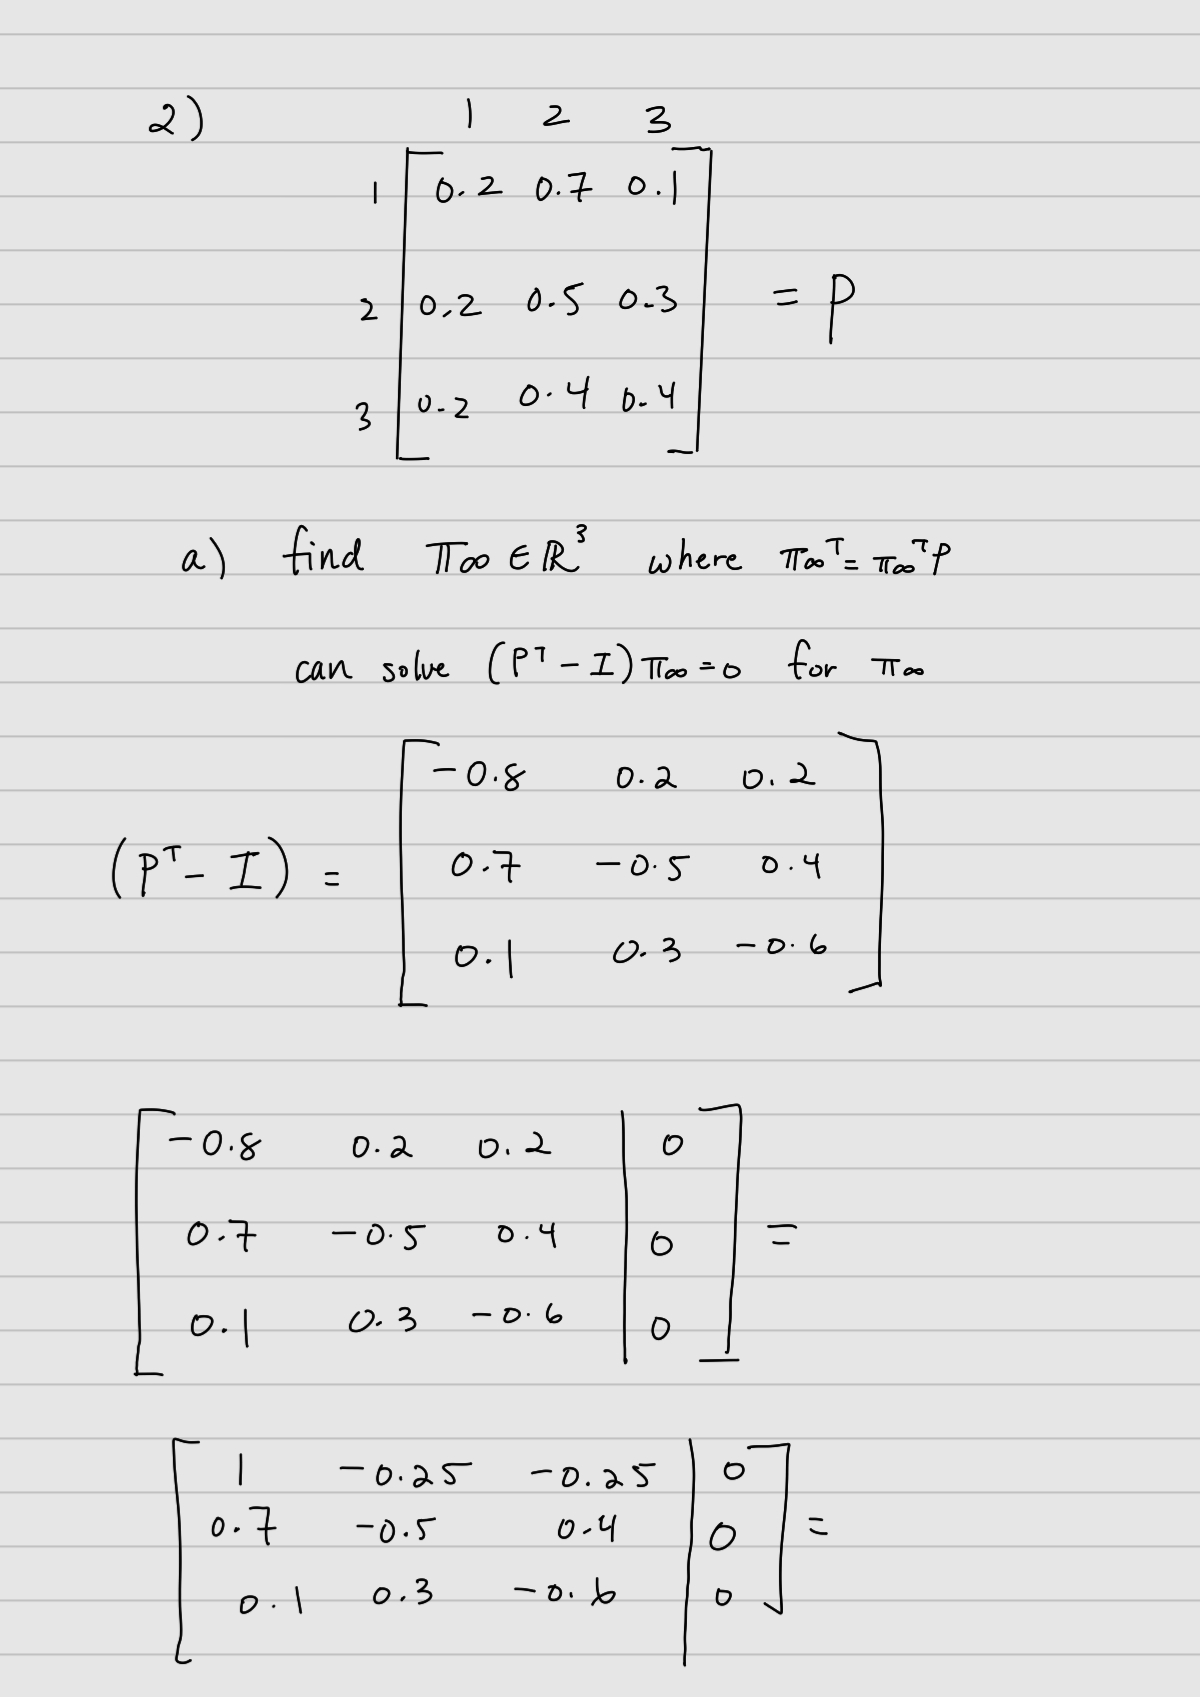 2)
1 2 3
1 0.2 0.7 0.1
2 0.2 0.5 0.3 = P
3 0.2 0.4 0.4
a) find π∞ ∈ ℝ³ where π∞ᵀ = π∞ᵀP
can solve (Pᵀ - I) π∞ = 0 for π∞
-0.8 0.2 0.2
(Pᵀ - I) = 0.7 -0.5 0.4
0.1 0.3 -0.6
-0.8 0.2 0.2 | 0
0.7 -0.5 0.4 | 0 =
0.1 0.3 -0.6 | 0
1 -0.25 -0.25 | 0
0.7 -0.5 0.4 | 0 =
0.1 0.3 -0.6 | 0